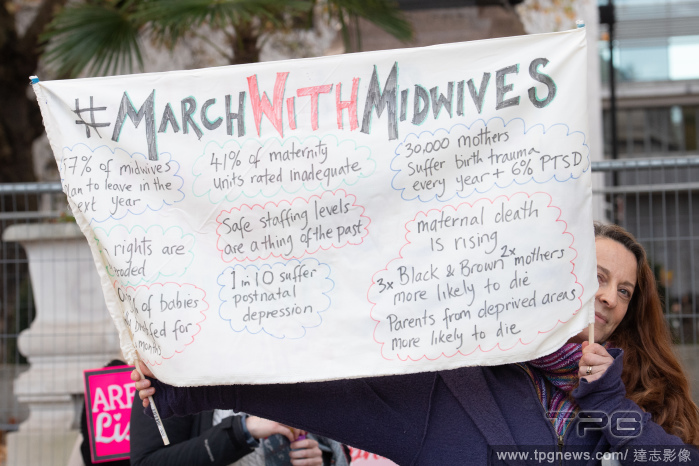 #MARCH WITH MIDWIVES
57% of midwives
plan to leave in the
next year
41% of maternity
units rated inadequate
30,000 mothers
Suffer birth trauma
every year + 6% PTSD
Safe staffing levels
are a thing of the past
rights are
1 in 10 suffer
postnatal
depression
of babies
fed for
months
maternal death
is rising
3x Black & Brown 2x mothers
more likely to die
Parents from deprived areas
more likely to die
ARE
Lis
TPG
www.tpgnews.com / 達志影像